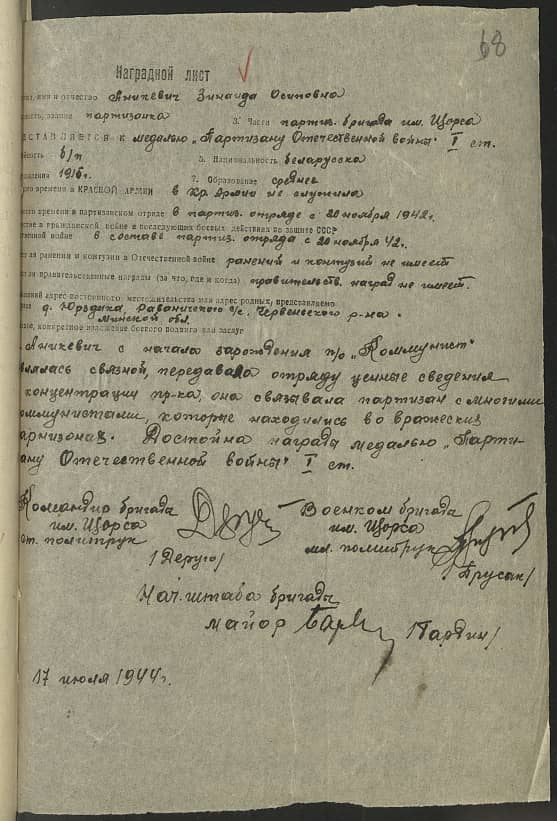 68
Наградной лист
имя и отчество Аникевич Зинаида Осиповна
звание партизанка 3. Части партиз. бригада им. Щорса
ДСТАВЛЯЕТСЯ к медалью „Партизану Отечественной войны" I ст.
йность б/п 5. Национальность беларусска
ждения 1916г. 7. Образование среднее
времени в КРАСНОЙ АРМИИ в Кр. Армии не служила
времени в партизанском отряде в партиз. отряде с 20 ноября 1942г.
стие в гражданской войне и последующих боевых действиях по защите СССР
ственной войне в составе партиз. отряда с 20 ноября 42г.
ранения и контузии в Отечественной войне ранений и контузий не имеет
правительственные награды (за что, где и когда) правительств. наград не имеет.
адрес постоянного местожительства или адрес родных, представляемо
д. Юрздика, Раваничского с/с. Червеньского р-на.
Минской обл.
конкретное изложение боевого подвига или заслуг
Аникевич с начала зарождения п/о „Коммунист"
влялась связной, передавала отряду ценные сведения
концентрации пр-ка, она связывала партизан с многими
оммунистами, которые находились во вражеских
арнизонах. Достойна награды медалью „Парти-
зану Отечественной войны" I ст.
Командир бригады Военком бригады
им. Щорса им. Щорса
ст. политрук мл. политрук
/Деруго/ /Брусан/
Нач. штаба бригады
майор /Бардин/
17 июля 1944г.